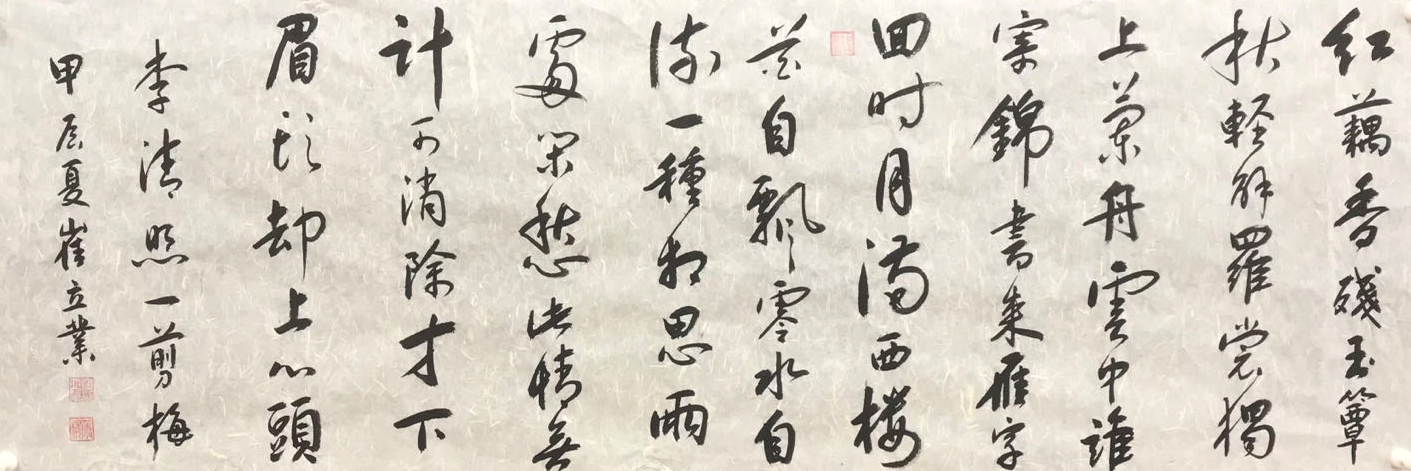 红藕香殘玉簟
秋輕解羅裳獨
上蘭舟雲中誰
寄錦書来雁字
回时月满西楼
花自飄零水自
流一種相思兩
處閑愁此情無
計可消除才下
眉頭却上心頭
李清照一剪梅
甲辰夏崔立業